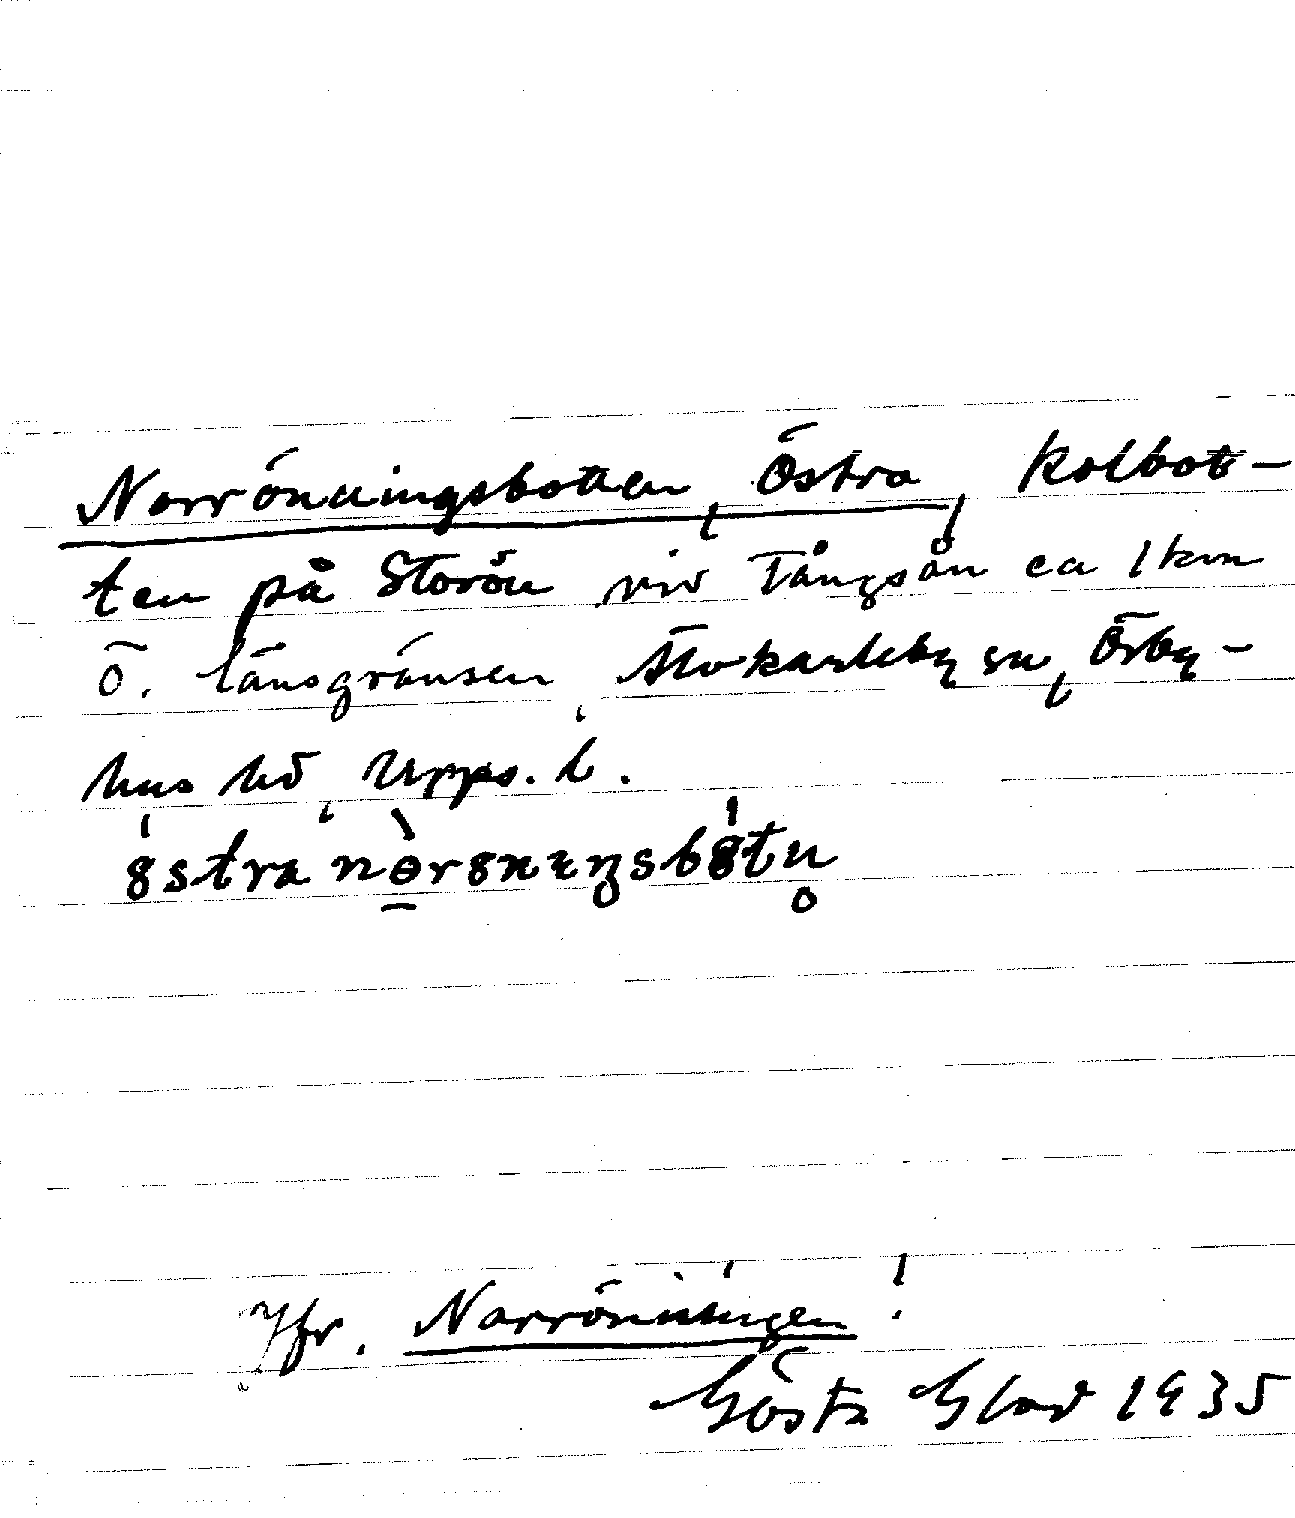 Norrönningsbotten, Östra, kolbot-
ten på Storön vid Tångsån ca 1 km
Ö. länsgränsen, Älvkarleby sn, Örby-
hus hd, Upps. l.
Jfr. Norrönningen!
Gösta Glad 1935